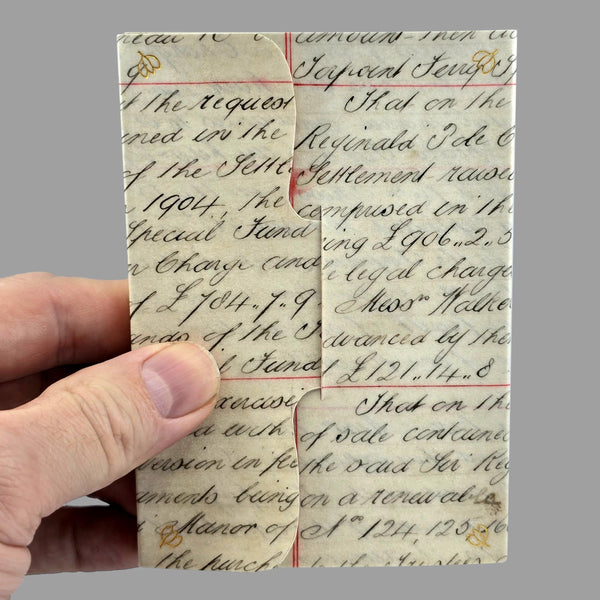 amount - then
Torpoint Ferry
t the request That on the
ned in the Reginald Pole C
of the Settle Settlement raised
1904, the comprised in the
Special Fund ing £906..2..5
n Charge and e legal charge
of £784..7..9 Messrs Walker
nds of the dvanced by the
l Fund £121..14..8
exercise That on the
of sale contained
version in fee the said Sir Reg
uments being on a renewable
Manor of Nos 124, 125, 16
the purch